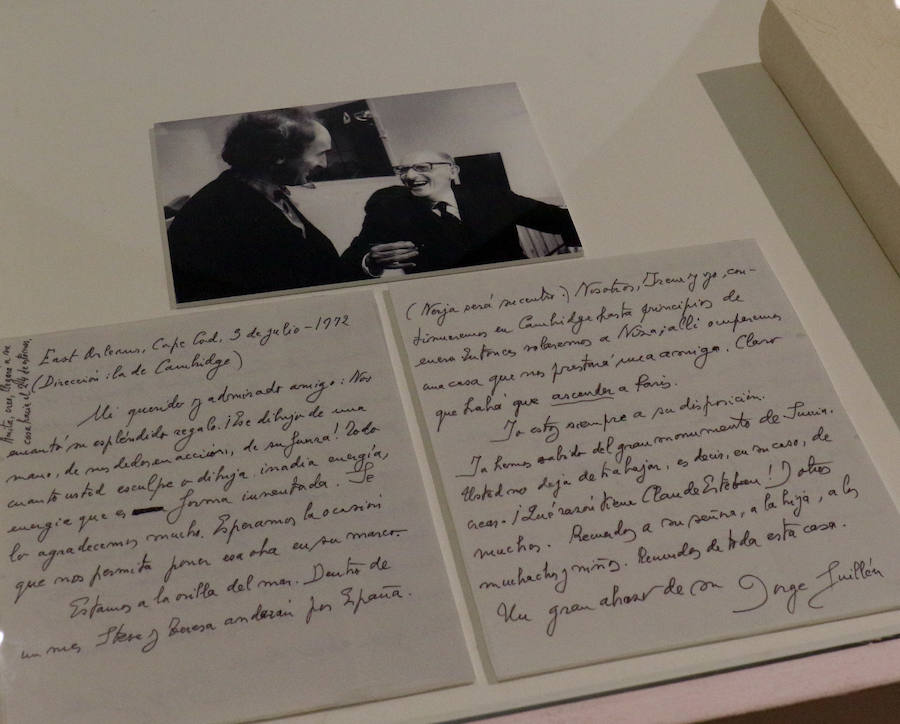 East Orleans, Cape Cod, 3 de julio-1972
(Dirección: la de Cambridge)
Mi querido y admirado amigo: Nos
encantó su espléndido regalo. ¡Ese dibujo de una
mano, de unos dedos en acción, de su fuerza! Todo
cuanto usted esculpe o dibuja, irradia energía,
energía que es forma inventada. Se
lo agradecemos mucho. Esperamos la ocasión
que nos permita poner esa obra en su marco.
Estamos a la orilla del mar. Dentro de
un mes Steve y Teresa andarán por España.
Anita, creo, llegará a su
casa hacia el 24 de
(Nerja será su centro.) Nosotros, Irene y yo, con-
tinuaremos en Cambridge hasta principios de
enero. Entonces volaremos a Niza: allí ocuparemos
una casa que nos prestará una amiga. Claro
que habrá que ascender a París.
Yo estoy siempre a su disposición.
Ya hemos sabido del gran monumento de
Usted no deja de trabajar, es decir, en su caso, de
crear. ¡Qué razón tiene Claude Esteban! Y otros
muchos. Recuerdos a su señora, a la hija, a los
muchachos y niños. Recuerdos de toda esta casa.
Un gran abrazo de su Jorge Guillén